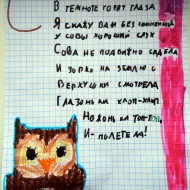 С
В темноте горят глаза
Я скажу вам без сомнений
У совы хороший слух
Сова не подвижно сидела
И зорко на землю с
Верхушки смотрела
Глазоньки хлоп-хлоп,
Ноженьки топ-топ
И - полетела!